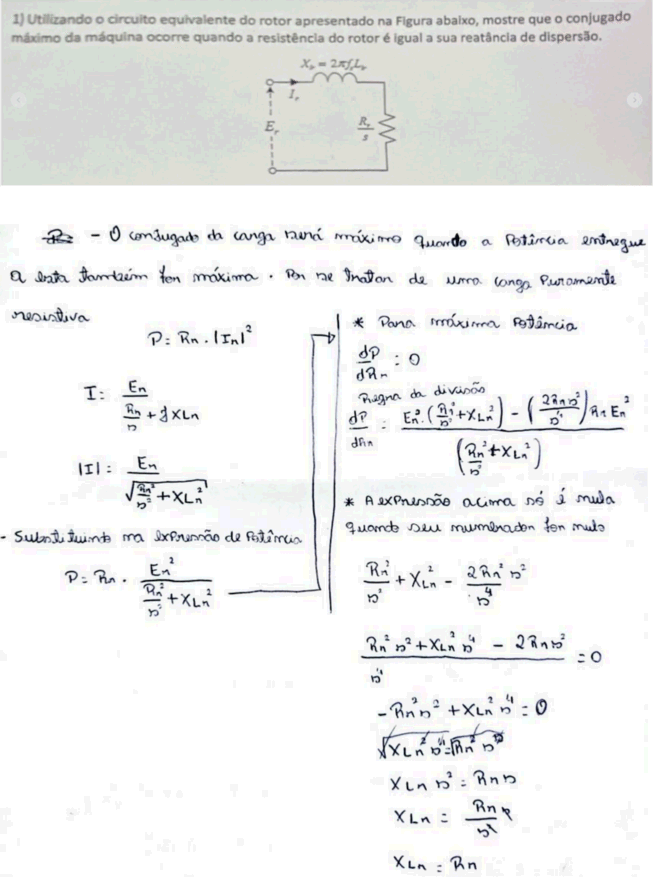 1) Utilizando o circuito equivalente do rotor apresentado na Figura abaixo, mostre que o conjugado
máximo da máquina ocorre quando a resistência do rotor é igual a sua reatância de dispersão.
Xᵣ = 2πfᵣLᵣ
Iᵣ
Eᵣ
Rᵣ/s
- O conjugado da carga será máximo quando a Potência entregue
a esta também for máxima. Por se tratar de uma carga Puramente
resistiva
P = Rr . |Ir|²
I = Er / (Rr/s + j XLr)
|I| = Er / √(Rr²/s² + XLr²)
- Substituindo na expressão de Potência
P = Rr . Er² / (Rr²/s² + XLr²)
* Para máxima Potência
dP/dRr = 0
Regra da divisão
dP/dRr = (Er² . (Rr²/s² + XLr²) - (2Rr s²/s⁴) Rr Er²) / (Rr²/s² + XLr²)
* A exPressão acima só é nula
quando seu numerador for nulo
Rr²/s² + XLr² - 2Rr² s²/s⁴
(Rr² s² + XLr² s⁴ - 2Rr s²) / s⁴ = 0
- Rr² s² + XLr² s⁴ = 0
√XLr² s⁴ = √Rr² s²
XLr s² = Rr s
XLr = Rr s / s²
XLr = Rr